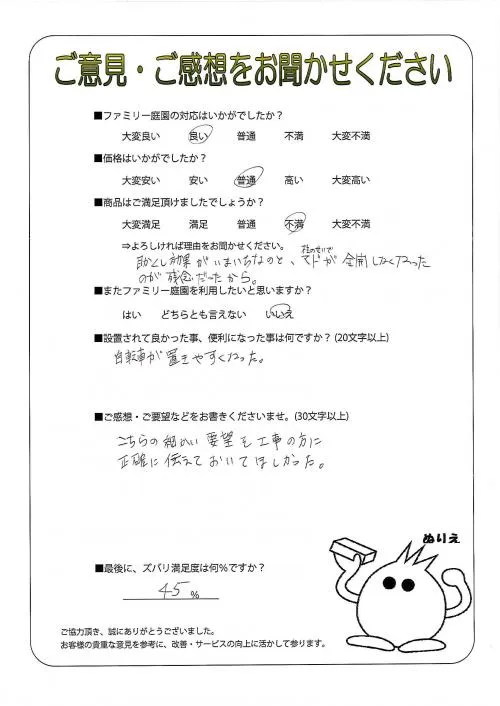 ご意見・ご感想をお聞かせください
■ファミリー庭園の対応はいかがでしたか？
大変良い 良い 普通 不満 大変不満
■価格はいかがでしたか？
大変安い 安い 普通 高い 大変高い
■商品はご満足頂けましたでしょうか？
大変満足 満足 普通 不満 大変不満
⇒よろしければ理由をお聞かせください。
柱のせいで
効果がいまいちなのと、ドが全開しなくなった
のが残念だったから。
■またファミリー庭園を利用したいと思いますか？
はい どちらとも言えない いいえ
■設置されて良かった事、便利になった事は何ですか？ (20文字以上)
自転車が置きやすくなった。
■ご感想・ご要望などをお書きくださいませ。(30文字以上)
こちらの細かい要望も工事の方に
正確に伝えておいてほしかった。
ぬりえ
■最後に、ズバリ満足度は何%ですか？
45 %
ご協力頂き、誠にありがとうございました。
お客様の貴重な意見を参考に、改善・サービスの向上に活かして参ります。